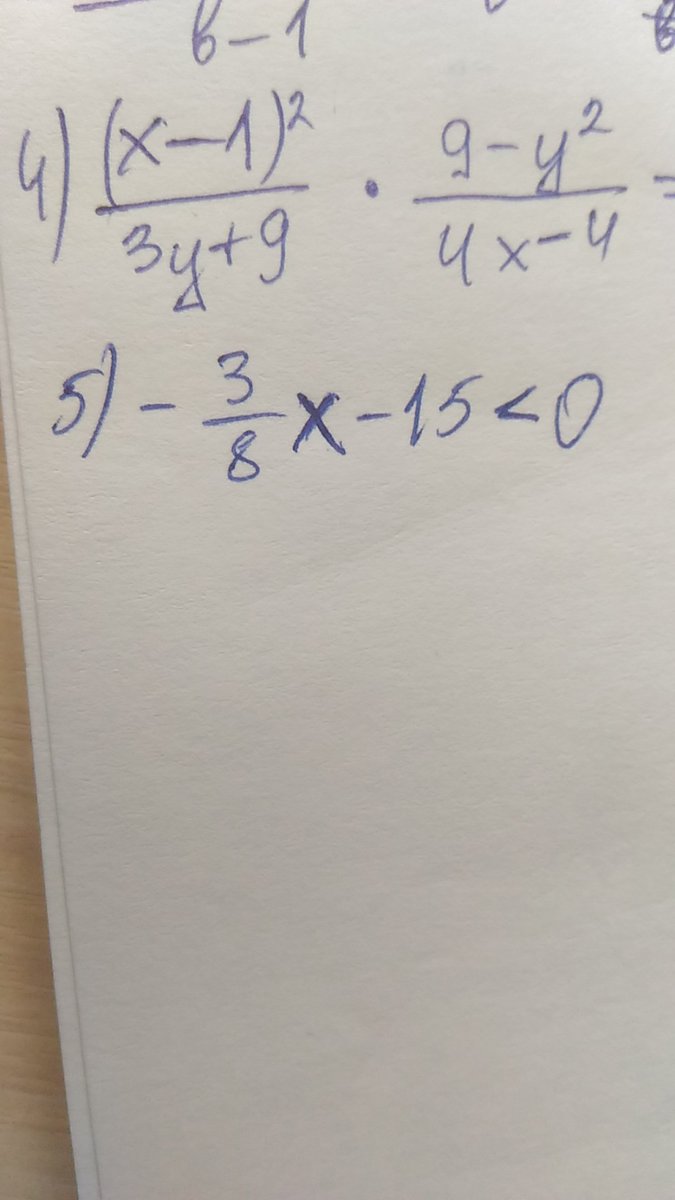 b-1
4) (x-1)²/(3y+9) · (9-y²)/(4x-4) =
5) -3/8 x - 15 < 0